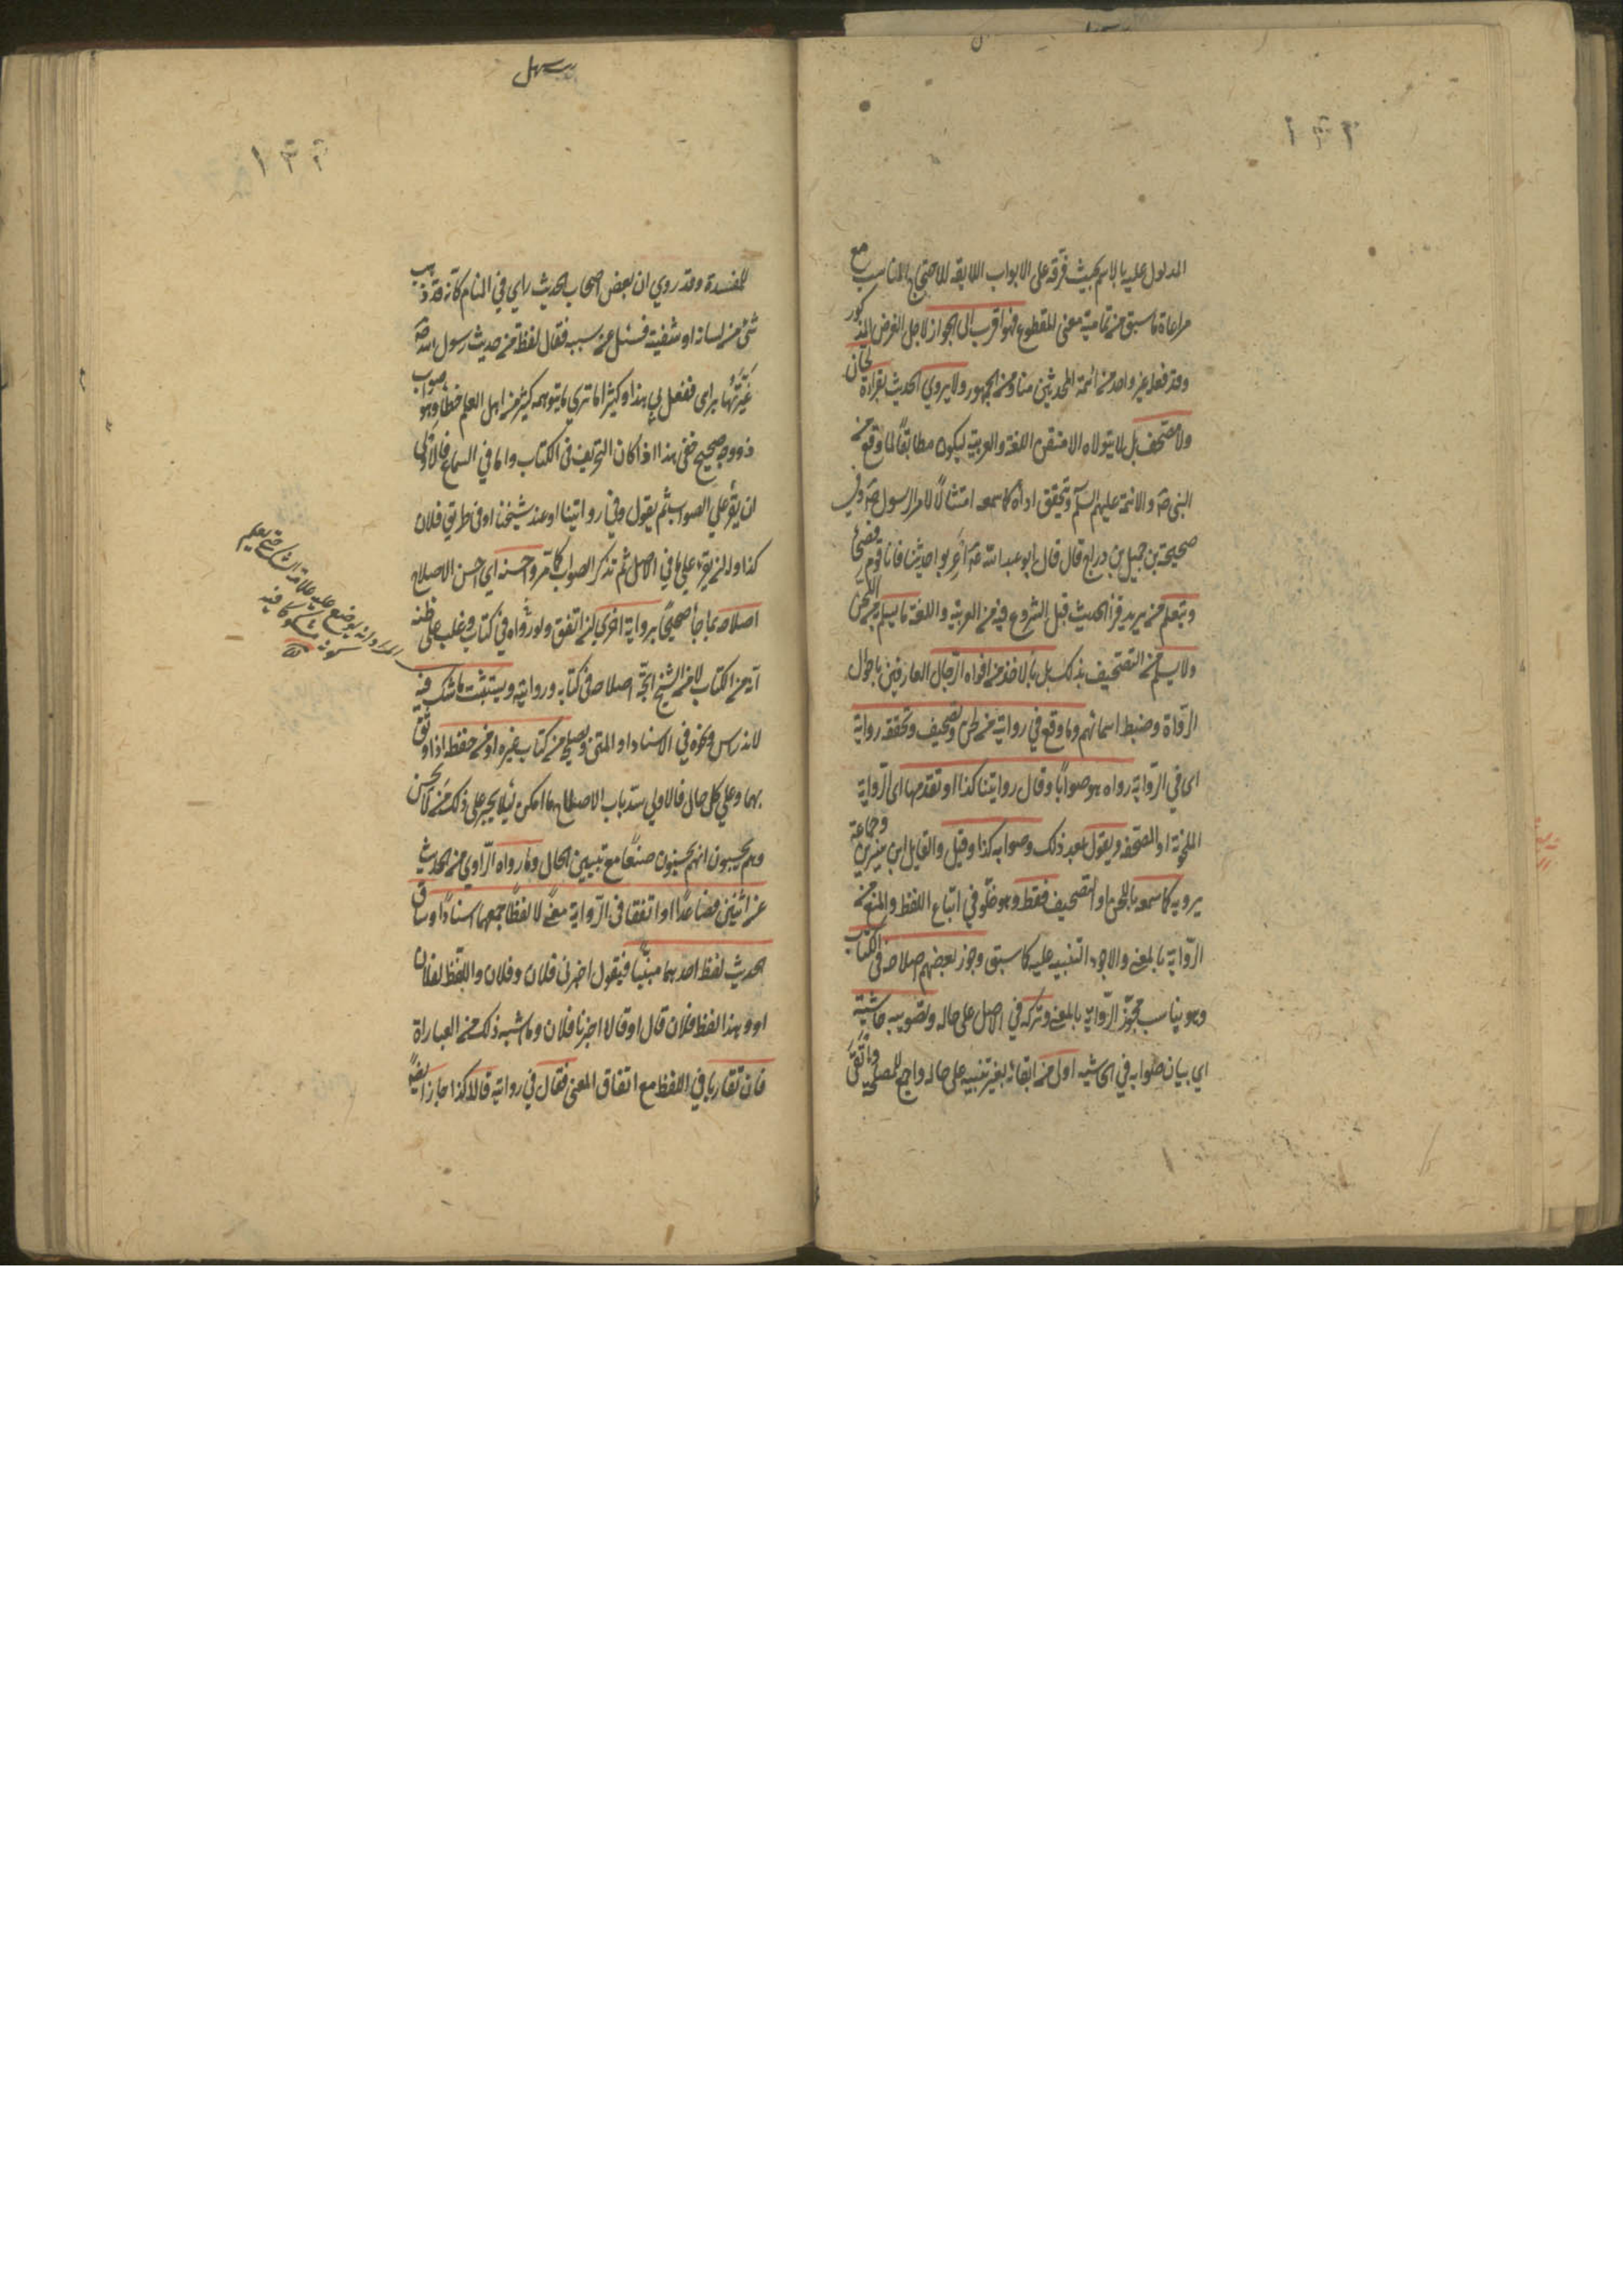 ١٣٢
المدلول عليه بالاسم بحيث فرقه على الابواب اللايقة للاحتجاج المناسب مع
مراعاة ما سبق من تمامية معنى المقطوع فهو اقرب الى الجواز لاجل الغرض المذكور
وقد فعله غير واحد من ائمة المحدثين منا ومن الجمهور ولا يروي الحديث بقراءة لحان
ولا مصحف بل لا يتولاه الا متقن اللغة والعربية ليكون مطابقًا لما وقع من
النبي صۤ والائمة عليهم السلم ويتحقق اداؤه كما سمعه امتثالًا لامر الرسول صۤ وفي
صحيحة بن جميل بن دراج قال قال ابو عبد الله عۤ اعربوا حديثنا فانا قوم فصحا
ويتعلم من يريد قراۤ الحديث قبل الشروع فيه من العربية واللغة ما يسلم به من اللحن
ولا يسلم من التصحيف بذلك بل بالاخذ من افواه الرجال العارفين باحوال
الرواة وضبط اسمائهم وما وقع في روايته من لحن وتصحيف وتحققه رواية
اى في الرواية رواه هو صوابًا وقال روايتنا كذا او تقدمها اى الرواية
الملحونة او المصحفة ويقول بعد ذلك وصوابه كذا وقيل والقايل ابن سيرين وجماعة
يرويه كما سمعه باللحن او التصحيف فقط وهو غلو في اتباع اللفظ والمنع من
الرواية بالمعنى والاجود التنبيه عليه كما سبق وجوز بعضهم اصلاحه في الكتاب
وهو يناسب مجوز الرواية بالمعنى وتركه في الاصل على حاله وتصويبه حاشية
اي بيان صوابه في الحاشية اولى من ابقائه بغير تنبيه على حاله واجمع للمصلحة وانفى
سهل
١٣٣
للمفسدة وقد روي ان بعض اصحاب الحديث راي في المنام كانه قد ذهب
شئ من لسانه او شفتيه فسئل عن سببه فقال لفظة من حديث رسول الله صۤ
غيرتها براى ففعل بي هذا وكثيرا ما تري ما يتوهمه كثير من اهل العلم خطا وهو صواب
ذو وجه صحيح خفى هذا اذا كان التحريف فى الكتاب واما في السماع فالاولى
ان يقرء على الصواب ثم يقول وفي روايتنا او عند شيخنا او فى طريق فلان
كذا وله ان يقرء على ما في الاصل ثم تذكر الصواب كما مر واحسنه اي احسن الاصلاح
اصلاحه بما جاء صحيحًا برواية اخرى ان اتفق ولو رواه في كتاب وغلب على ظنه
انه من الكتاب لا من الشيخ اتجه اصلاحه فى كتابه وروايته ويستثبت ما شك فيه
لاندراس ونحوه في الاسناد او المتن ويصلحه من كتاب غيره او من حفظه اذا وثق
بهما وعلي كل حال فالاولي سد باب الاصطلاح ما امكن لئلا يجسر على ذلك من لا يحسن
وهم يحسبون انهم يحسنون صنعًا مع تبيين الحال وما رواه الراوي من الحديث
عن اثنين فصاعدًا او اتفقا فى الرواية معنى لا لفظًا جمعهما اسنادًا وساق
الحديث لفظ احدهما مبينًا فيقول اخبرني فلان وفلان واللفظ لفلان
او وهذا لفظ فلان قال او قالا اخبرنا فلان وما اشبه ذلك من العباراة
فان تقاربا في اللفظ مع اتفاق المعنى فقال في روايته قالا كذا جاز ايضًا
المراد انه يوضع عليه علامة الشك حتى يعلم
كونه مشكوكا فيه